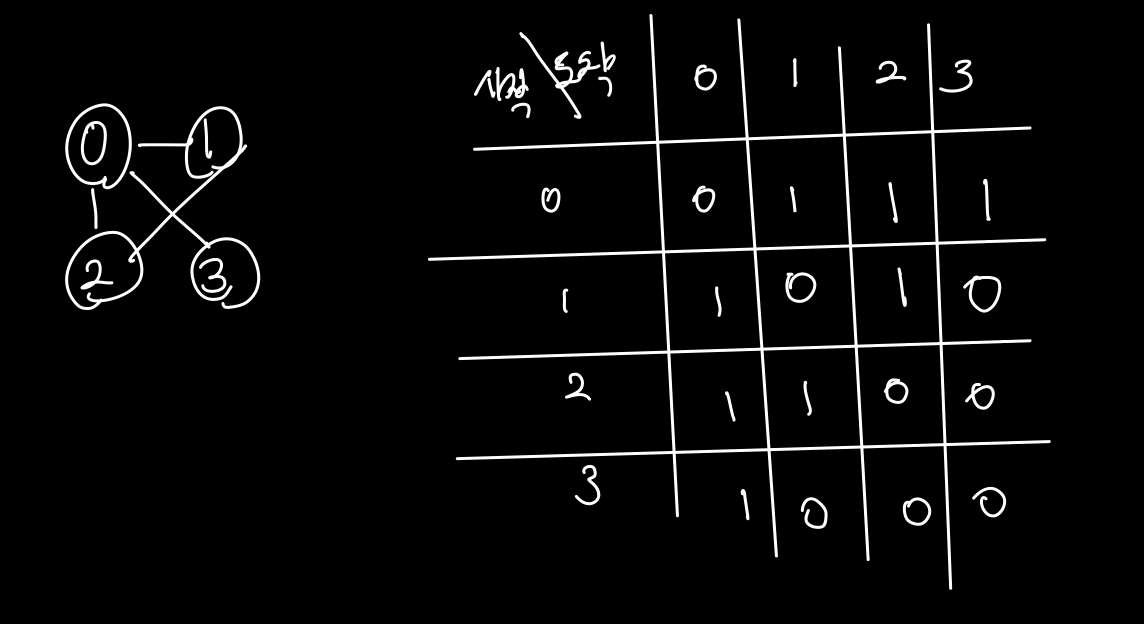 0 1
2 3
0 1 2 3
0 0 1 1 1
1 1 0 1 0
2 1 1 0 0
3 1 0 0 0